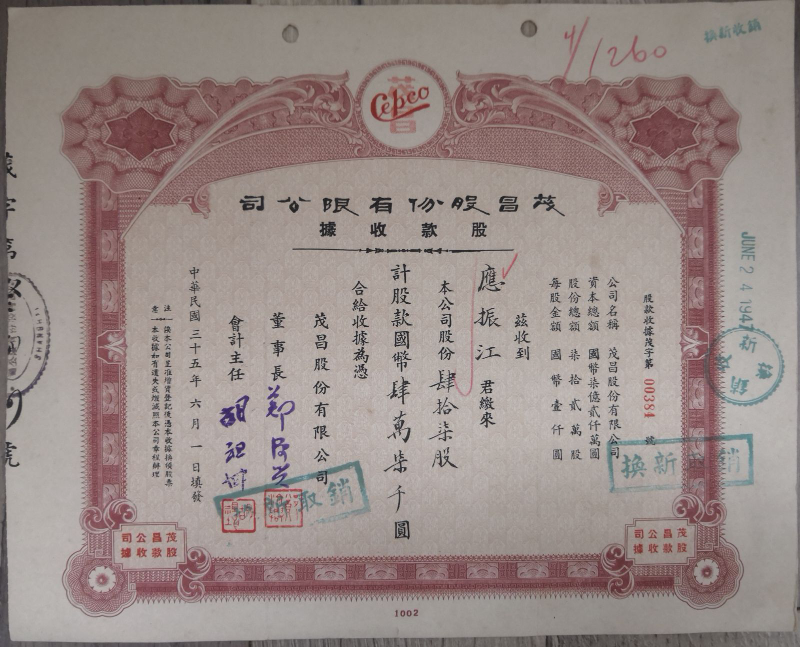 4/1260
換新收銷
Cepco
茂昌
茂昌股份有限公司
股款收據
JUNE 24 1947
股款收據茂字第 00384 號
公司名稱 茂昌股份有限公司
資本總額 國幣柒億貳仟萬圓
股份總額 柒拾貳萬股
每股金額 國幣壹仟圓
茲收到
應振江君繳來
本公司股份肆拾柒股
計股款國幣肆萬柒千圓
合給收據為憑
茂昌股份有限公司
董事長
會計主任
中華民國三十五年六月一日填發
注意
一 俟本公司呈准增資登記後憑本收據換領股票
一 本收據如有遺失或燬滅照本公司章程辦理
換新收銷
換新取銷
茂昌公司股款收據
茂昌公司股款收據
1002